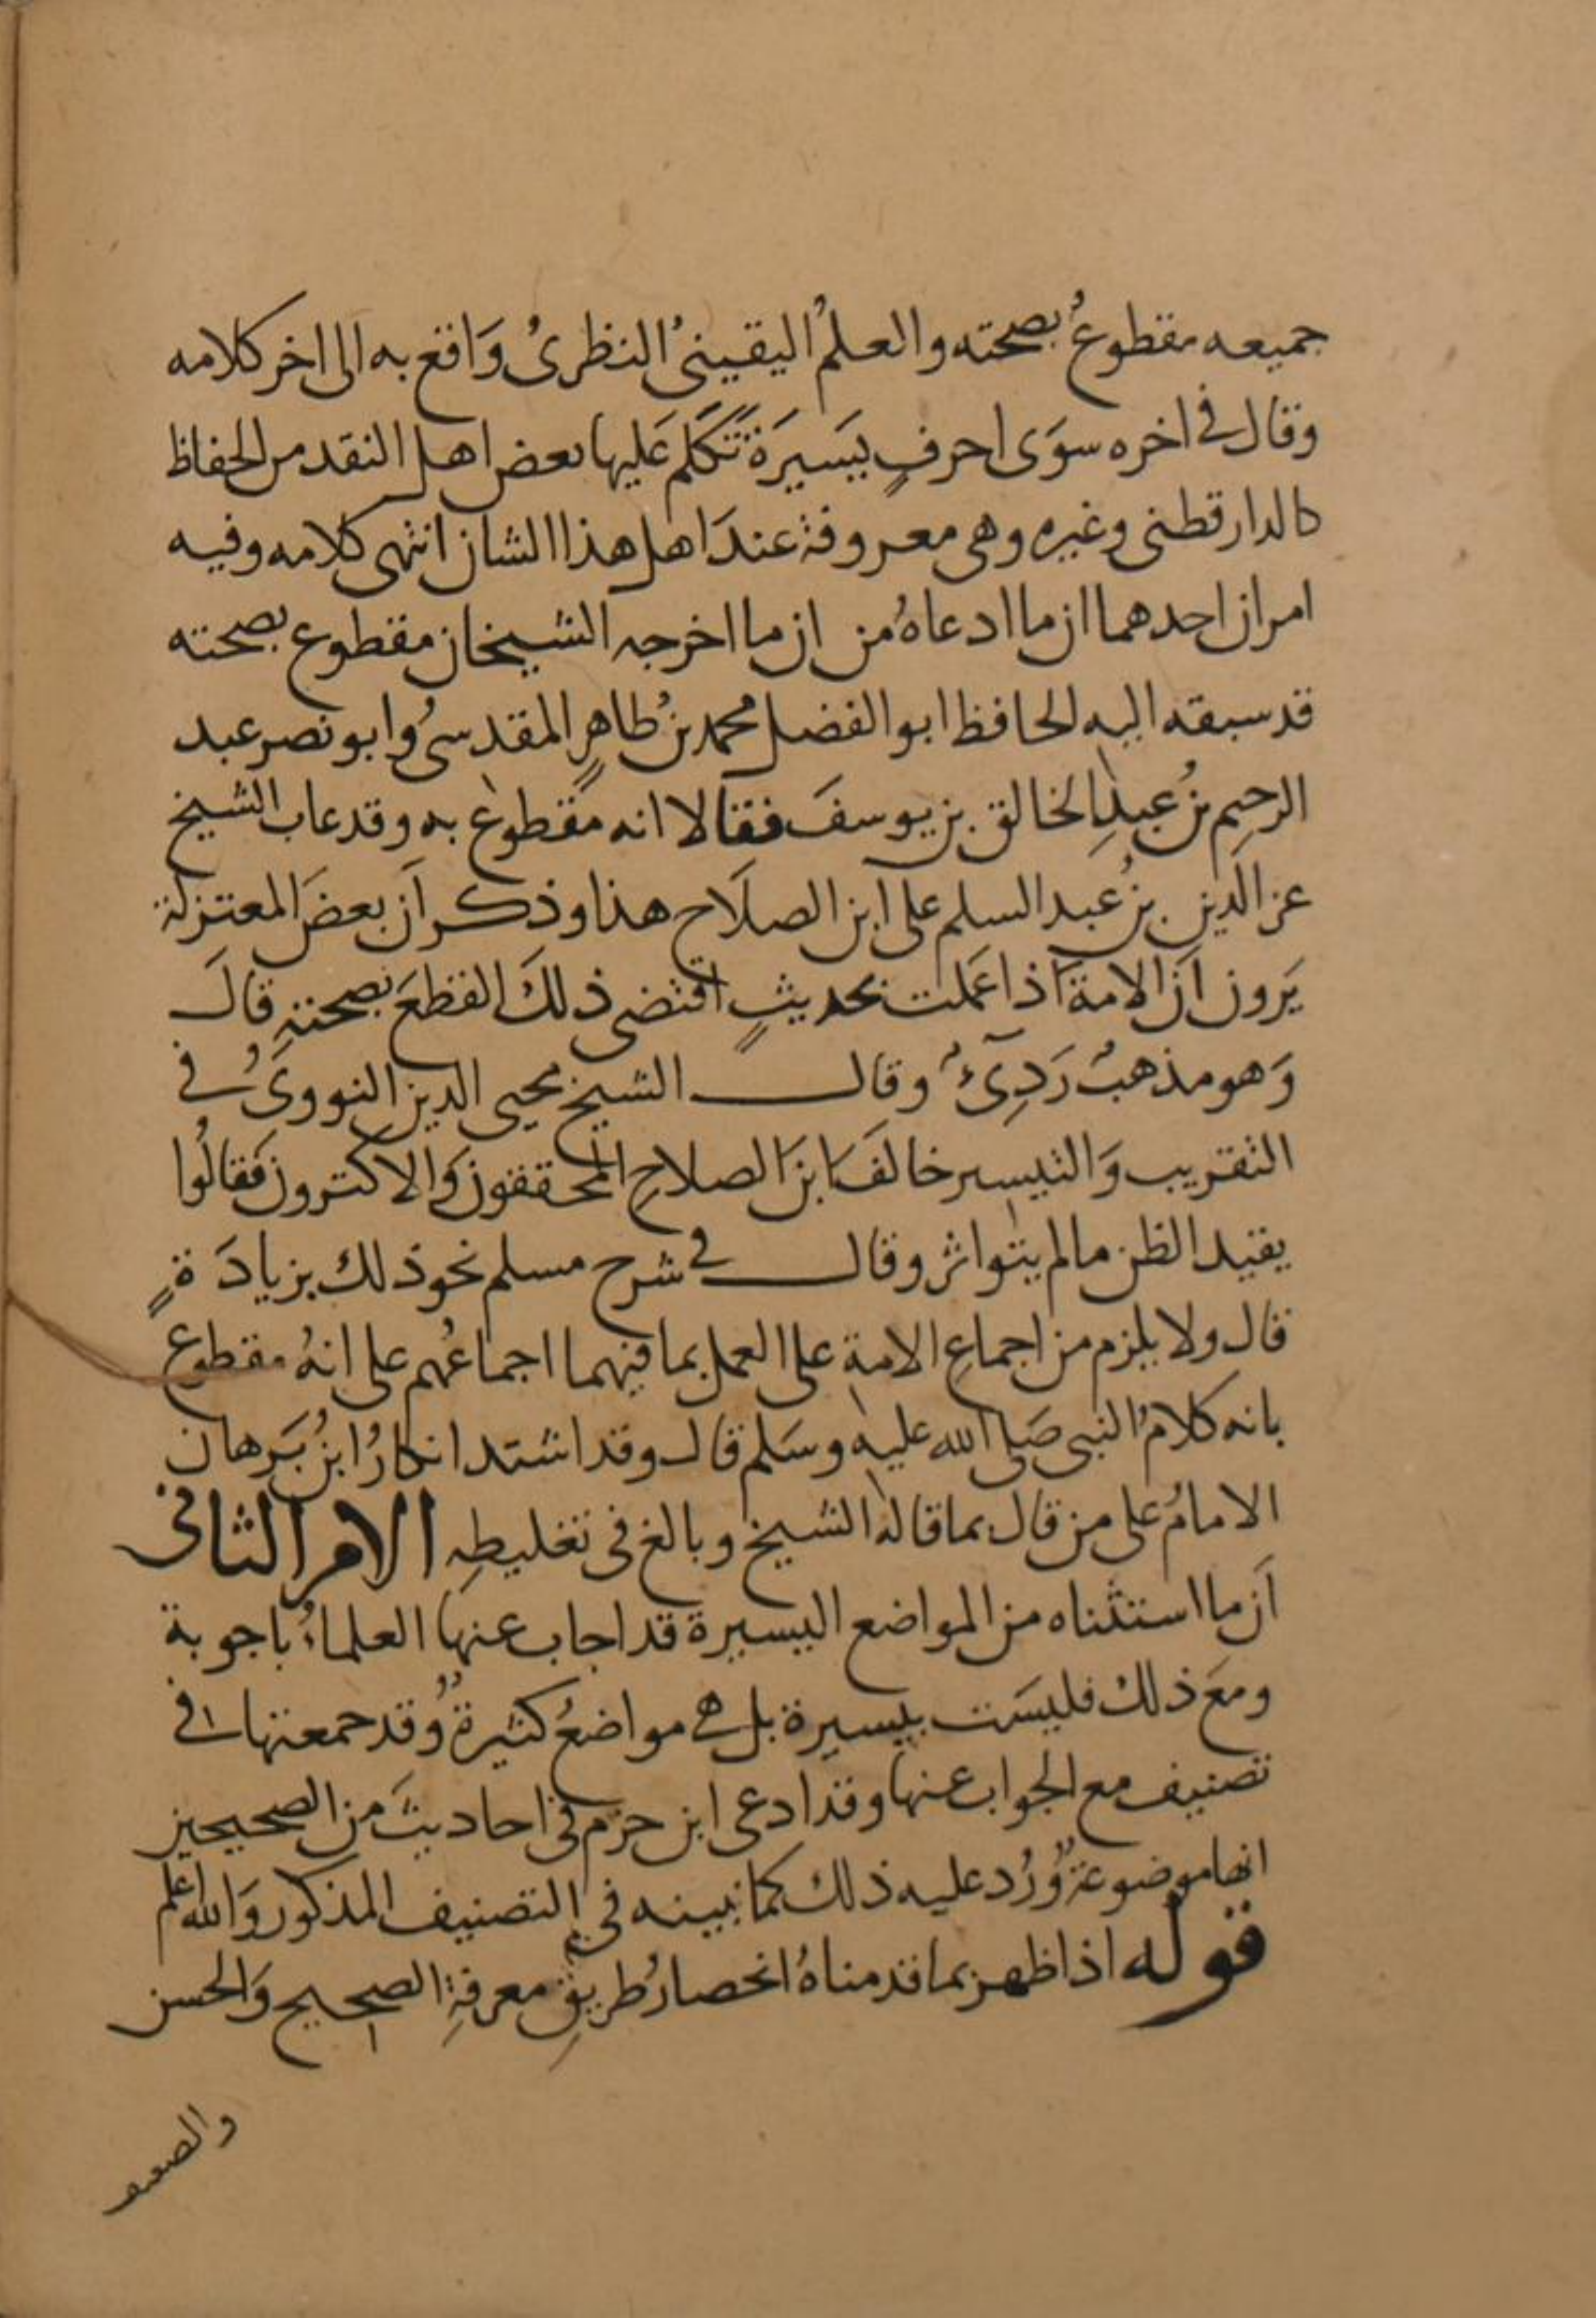 جميعه مقطوعُ بصحته والعلمُ اليقينىُ النظرىُ وَاقع به الى اخر كلامه
وقال في اخره سوَى احرفٍ يَسيرَة تَكلم عَليها بعض اهل النقد من الحفاظ
كالدارقطنى وغيره وهى معروفة عندَ اهل هذا الشان انتهى كلامه وفيه
امران احدهما ان ما ادعاهُ من ان ما اخرجه الشيخان مقطوع بصحته
قد سبقه اليه الحافظ ابو الفضل محمد بنُ طاهرٍ المقدسىُ وابو نصر عبد
الرحيم بنُ عبدِ الخالق بن يوسفَ فقالا انه مقطوع به وقد عاب الشيخ
عز الدين بنُ عبد السلم على ابن الصلاح هذا وذكر اَن بعضَ المعتزلة
يَرون اَن الامة اذا عَملت بحديثٍ اقتضى ذلكَ القطعَ بصحته قالَ
وَهو مذهبُ رَدِىءُ وقال الشيخ محيى الدين النووىُ في
التقريب وَالتيسير خالفَ ابنَ الصلاحِ المحققون وَالاكثرون فقالُوا
يفيد الظن مالم يتواتر وقال في شرح مسلم نحو ذلك بزيادَةٍ
قال ولا يلزم من اجماعِ الامة على العمل بما فيهما اجماعُهم على انهُ مقطوع
بانه كلامُ النبى صَلى الله عليه وسَلم قال وقد اشتد انكارُ ابنُ بَرهان
الامامُ على من قال بما قالهُ الشيخ وبالغ فى تغليطِه الامر الثانى
اَن ما استثناه من المواضع اليسيرة قد اجاب عنها العلماءُ باجوبة
ومعَ ذلك فليسَت بيسيرة بل هى مواضعُ كثيرةُ وقد جمعتها في
تصنيف مع الجواب عنها وقد ادعى ابن حزم في احاديثَ من الصحيحين
انها موضوعة وُرُد عليه ذلك كما نبينه في التصنيف المذكور وَالله اعلم
قوله اذا ظهر بما قدمناهُ انحصارُ طريقِ معرفةِ الصحيح وَالحسن
والضعيف